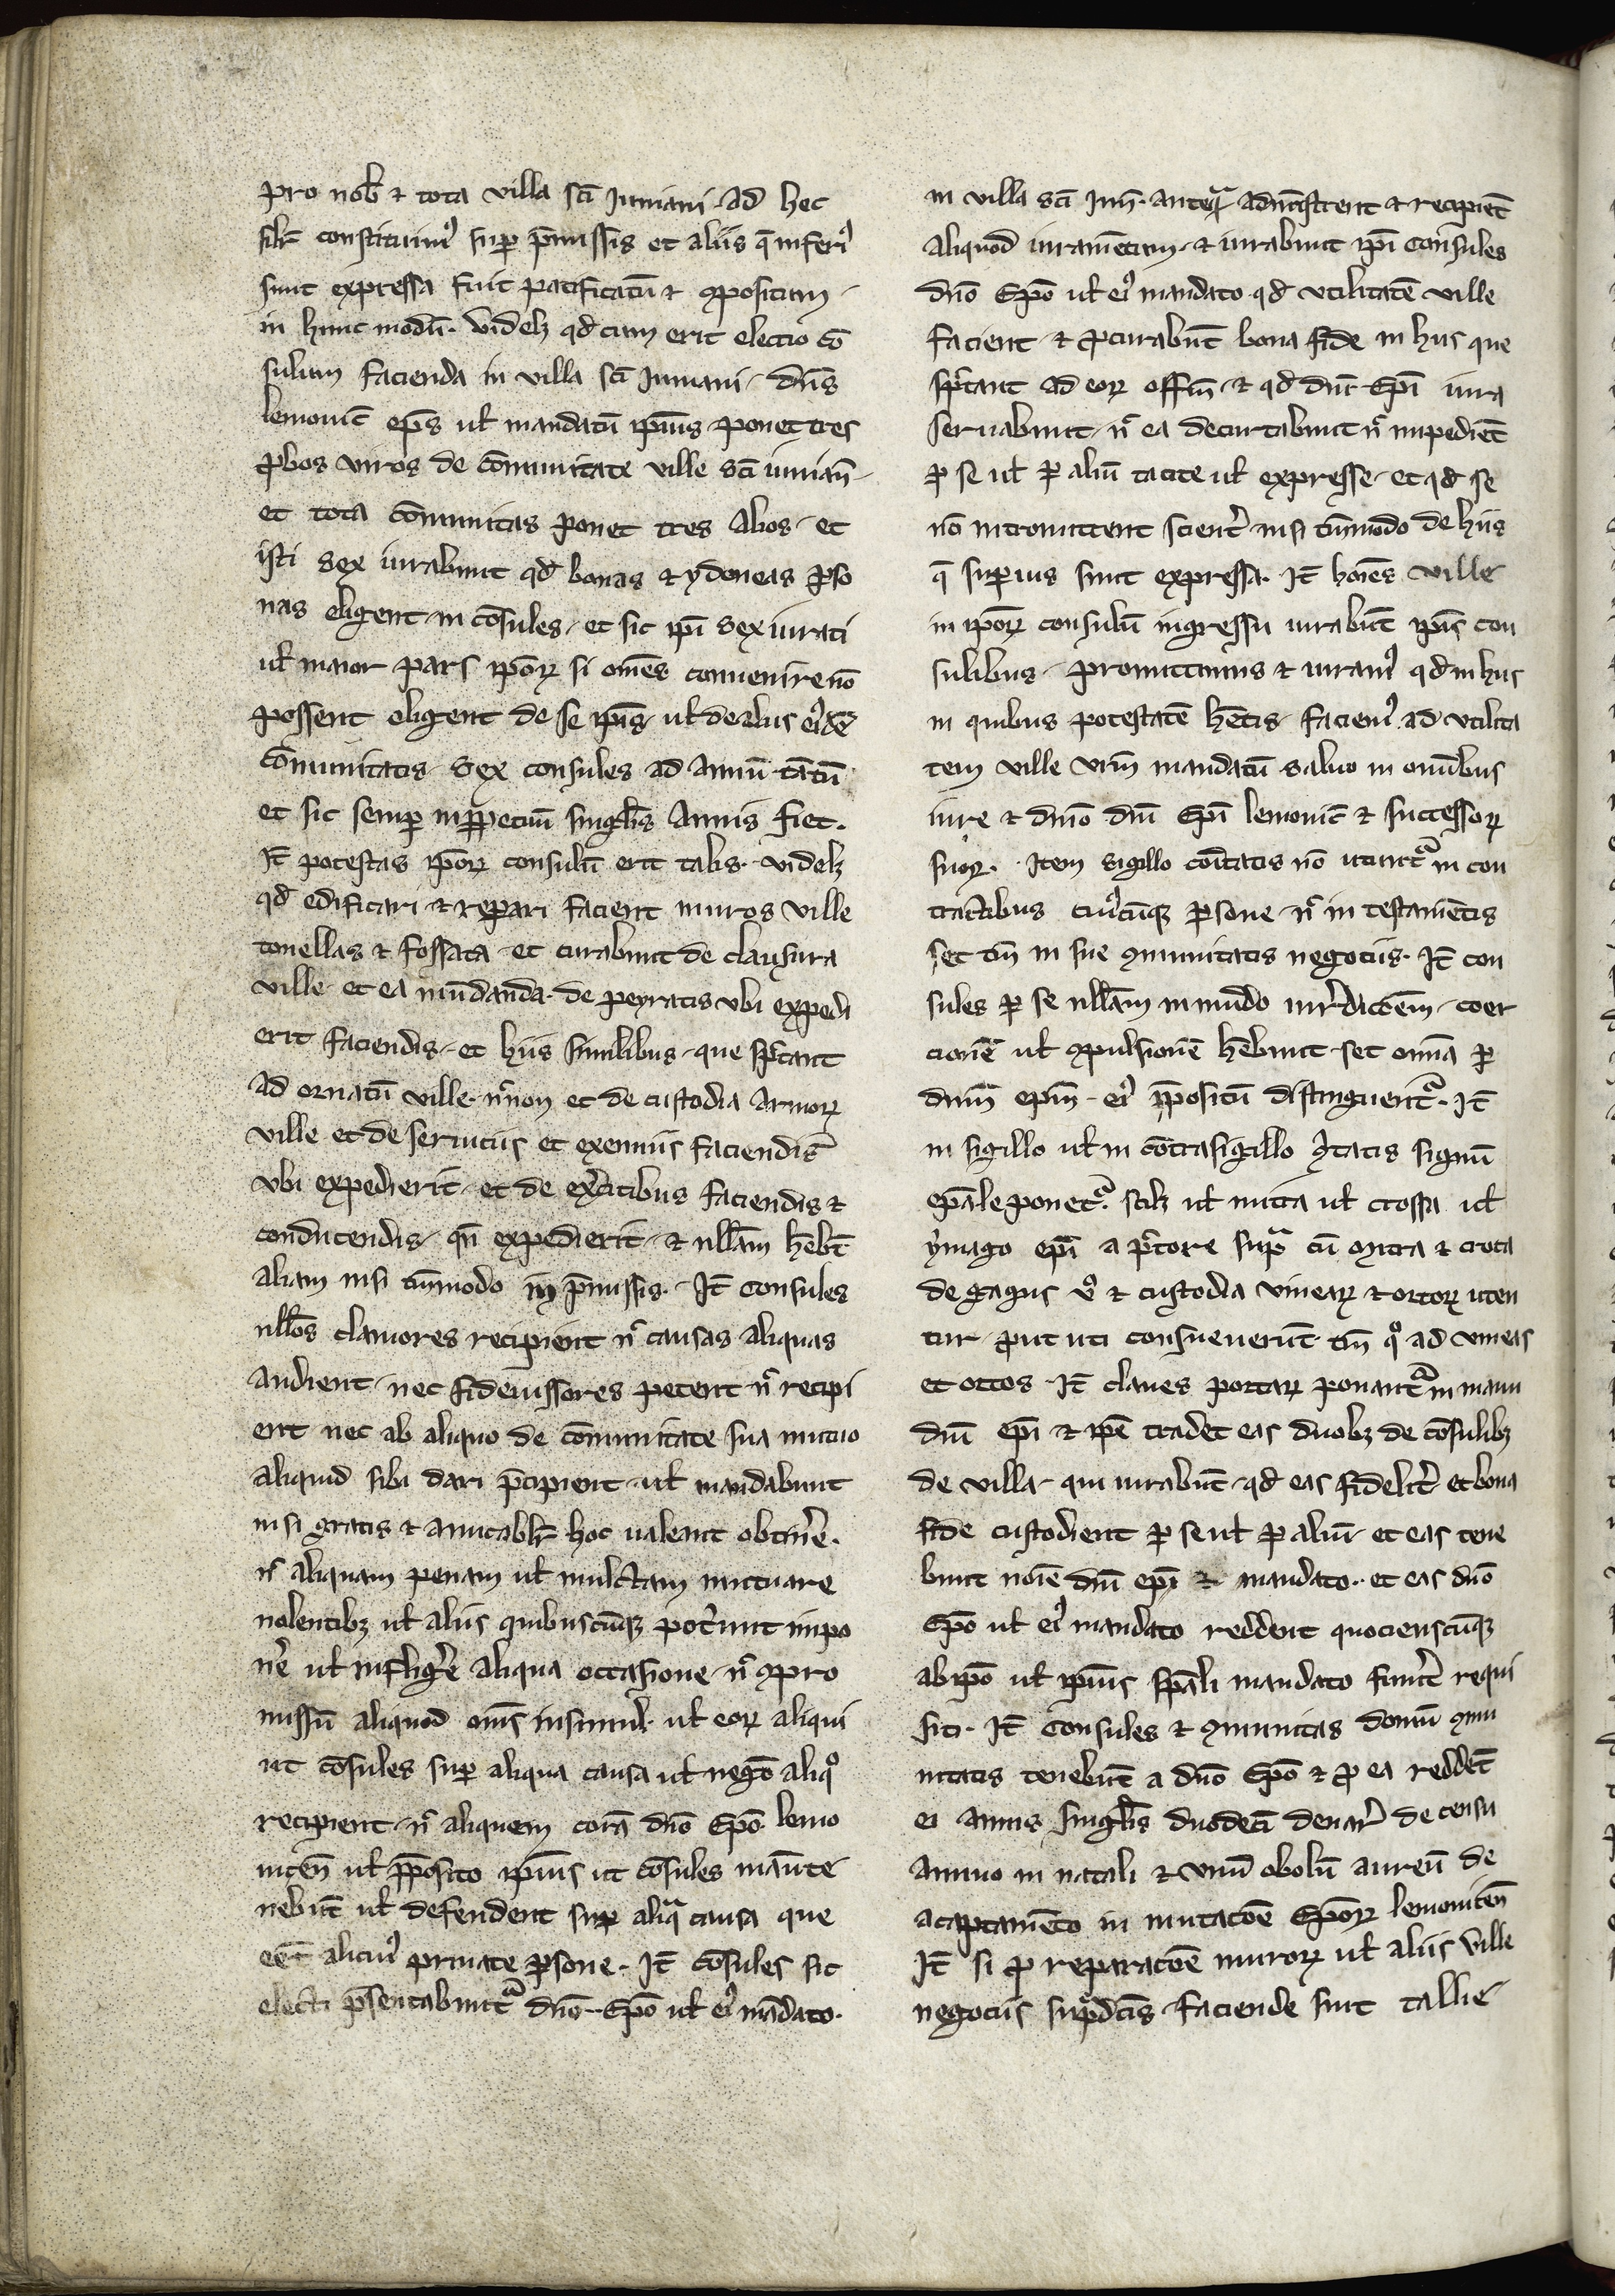 pro nob̄ ⁊ tota villa sc̄i Juniani. ad hec
sil̄r constituimꝰ sup̱ p̄missis et aliis q̄ inferiꝰ
sunt expressa fuit pacificatū ⁊ ꝯpositum
in hunc modū. videlꝫ qd̄ cum erit electio cō
sulum facienda in villa sc̄i Juniani. dn̄s
lemouic̄ ep̄s ul̄ mandatū ip̄ius ponet tres
ꝓbos viros de cōmunitate ville sc̄i iunian̄.
et tota cōmunitas ponet tres alios. et
isti sex iurabunt qd̄ bonas ⁊ ydoneas ꝑso
nas eligent in cōsules. et sic ip̄i sex iurati
ul̄ maior pars ip̄oꝝ si om̄es conuenire nō
possent eligent de se ip̄is ul̄ de aliis eiꝰdē
cōmunitatis sex consules ad annū tātū
et sic semꝑ inꝑpetuū singul̄is annis fiet.
Jt̄ potestas ip̄oꝝ consulū erit talis. videlꝫ
qd̄ edificari ⁊ reparari facient muros ville
tonellas ⁊ fossata. et curabunt de clausura
ville et ea mūdanda. de peyratis vbi expedi
erit faciendis. et hiis similibus. que spc̄tant
ad ornatū ville. nc̄non et de custodia armoꝝ
ville et de seruiciis et exenniis faciendis
vbi expedierit. et de exc̄itibus faciendis ⁊
conducendis. qn̄ expedierit. ⁊ null̄am hēbt̄
aliam nisi tm̄modo in p̄missis. Jt̄ consules
null̄os clamores recipient nc̄ causas aliquas
audient. nec fideiussores petent nc̄ recipi
ent nec ab aliquo de cōmunitate sua mutuo
aliquid sibi dari p̄cipient. ul̄ mandabunt
nisi gratis ⁊ amicabil̄r hoc ualeant obtin̄e.
nc̄ aliquam penam ul̄ mulctam mutuare
nolentibꝫ ul̄ aliis quibuscūqꝫ pot̄unt impo
n̄e ul̄ infliḡe aliqua occasione. nc̄ ꝯpro
missū aliquod om̄s insimul. ul̄ eoꝝ aliqui
ut cōsules suꝑ aliqua causa ul̄ negō aliqͦ
recipient. nc̄ aliquem corā dn̄o Ep̄o lemo
uicen̄ ul̄ p̄posito ip̄ius ut cōsules manute
nebūt ul̄ defendent suꝑ aliqᵃ causa que
eēt alicuiꝰ priuate ꝑsone. Jt̄ cōsules sic
electi p̄sentabunt᷑ dn̄o Ep̄o ul̄ eiꝰ mādato.
in villa sc̄i Jun̄. anteqᵃ adm̄istrent ⁊ recipiēt
aliquod iuramētum. ⁊ iurabunt ip̄i consules
dn̄o Ep̄o ul̄ eiꝰ mandato qd̄ vtilitatē ville
facient ⁊ ꝓcurabūt bona fide in hiis que
spc̄tant ad eoꝝ offm̄ ⁊ qd̄ dn̄i Ep̄i iura
seruabunt. nc̄ ea decurtabunt nc̄ impediēt
ꝑ se ul̄ ꝑ aliū tacite ul̄ expresse. et qd̄ se
nō intromittent scient̄ nisi tm̄modo de hiis
q̄ suꝑius sunt expressa. Jt̄ hoīes ville
in ip̄oꝝ consulū ingressu iurabūt ip̄is con
sulibus. promittimus ⁊ iuramꝰ qd̄ in hiis
in quibus potestatē hētis faciemꝰ ad vtilita
tem ville vr̄m mandatū saluo in omībus
iure ⁊ dn̄io dn̄i Ep̄i lemouic̄ ⁊ successoꝝ
suoꝝ. Jtem sigillo cōitatis nō utunt᷑ in con
tractibus cuiꝰcūqꝫ ꝑsone nc̄ in testamētis
set tm̄ in sue ꝯmunitatis negociis. Jt̄ con
sules ꝑ se null̄am in mūdo iur̄dict̄oēm. coer
cionē ul̄ ꝯpulsionē hēbunt. set omīa ꝑ
dn̄m epm̄. eiꝰ p̄positū distinguent᷑. Jt̄
in sigillo ul̄ in cōtrasigillo ꝯ̄itatis signū
ep̄ale ponet᷑. scilꝫ ul̄ mitra ul̄ crossa ul̄
ẏmago ep̄i a pc̄tore supᵃ cū mitra ⁊ croca
de gagiis vͦ ⁊ custodia vineaꝝ ⁊ ortoꝝ uten
tur ꝓut uti consueuerūt. tm̄ qͦ ad vineas
et ortos. Jt̄ claues portaꝝ ponant᷑ in manu
dn̄i ep̄i ⁊ ip̄e tradet eas duobꝫ de cōsulibꝫ
de villa. qui iurabūt. qd̄ eas fidelit̄ et bona
fide custodient ꝑ se ul̄ ꝑ aliū. et eas tene
bunt noīe dn̄i ep̄i ⁊ mandato. et eas dn̄o
Ep̄o ul̄ eiꝰ mandato reddent quocienscūqꝫ
ab ip̄o ul̄ ip̄ius sp̄ali mandato fuīnt requi
siti. Jt̄ consules ⁊ ꝯmunitas domū ꝯmu
nitatis tenebūt a dn̄o Ep̄o ⁊ ꝓ ea reddēt
ei annis singul̄is duodecī denar̄ de censu
annuo in natali ⁊ vnū obolū aureū de
acaptamēto in mutacōe Ep̄oꝝ lemouicen̄
Jt̄ si ꝓ reparacōe muroꝝ ul̄ aliis ville
negociis supᵃdc̄is faciende sint tallie